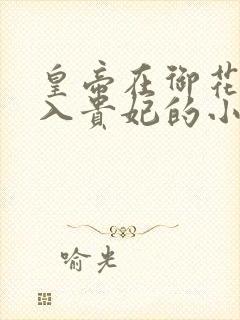 皇帝在御花
入贵妃的小
喻光